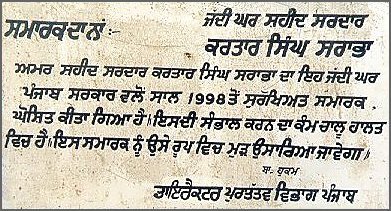 ਸਮਾਰਕ ਦਾ ਨਾਂ:- ਜੱਦੀ ਘਰ ਸਹੀਦ ਸਰਦਾਰ
ਕਰਤਾਰ ਸਿੰਘ ਸਰਾਭਾ
ਅਮਰ ਸਹੀਦ ਸਰਦਾਰ ਕਰਤਾਰ ਸਿੰਘ ਸਰਾਭਾ ਦਾ ਇਹ ਜੱਦੀ ਘਰ
ਪੰਜਾਬ ਸਰਕਾਰ ਵਲੋਂ ਸਾਲ 1998 ਤੋਂ ਸੁਰੱਖਿਅਤ ਸਮਾਰਕ
ਘੋਸ਼ਿਤ ਕੀਤਾ ਗਿਆ ਹੈ। ਇਸਦੀ ਸੰਭਾਲ ਕਰਨ ਦਾ ਕੰਮ ਚਾਲੂ ਹਾਲਤ
ਵਿਚ ਹੈ। ਇਸ ਸਮਾਰਕ ਨੂੰ ਉਸੇ ਰੂਪ ਵਿਚ ਮੁੜ ਉਸਾਰਿਆ ਜਾਵੇਗਾ।
ਬਾ. ਹੁਕਮ
ਡਾਇਰੈਕਟਰ ਪੁਰਤੱਤਵ ਵਿਭਾਗ ਪੰਜਾਬ